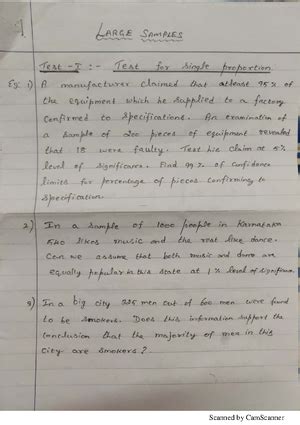 LARGE SAMPLES
Test - I :- Test for single proportion
Eg: 1) A manufacturer claimed that atleast 95% of
the equipment which he supplied to a factory
confirmed to specifications. An examination of
a sample of 200 pieces of equipment revealed
that 18 were faulty. Test his claim at 5%
level of significance. Find 99% of confidence
limits for percentage of pieces confirming to
specification.
2) In a sample of 1000 people in Karnataka
540 likes music and the rest like dance.
Can we assume that both music and dance are
equally popular in this state at 1% level of significance.
3) In a big city 325 men out of 600 men were found
to be smokers. Does this information support the
conclusion that the majority of men in this
City are smokers?
Scanned by CamScanner